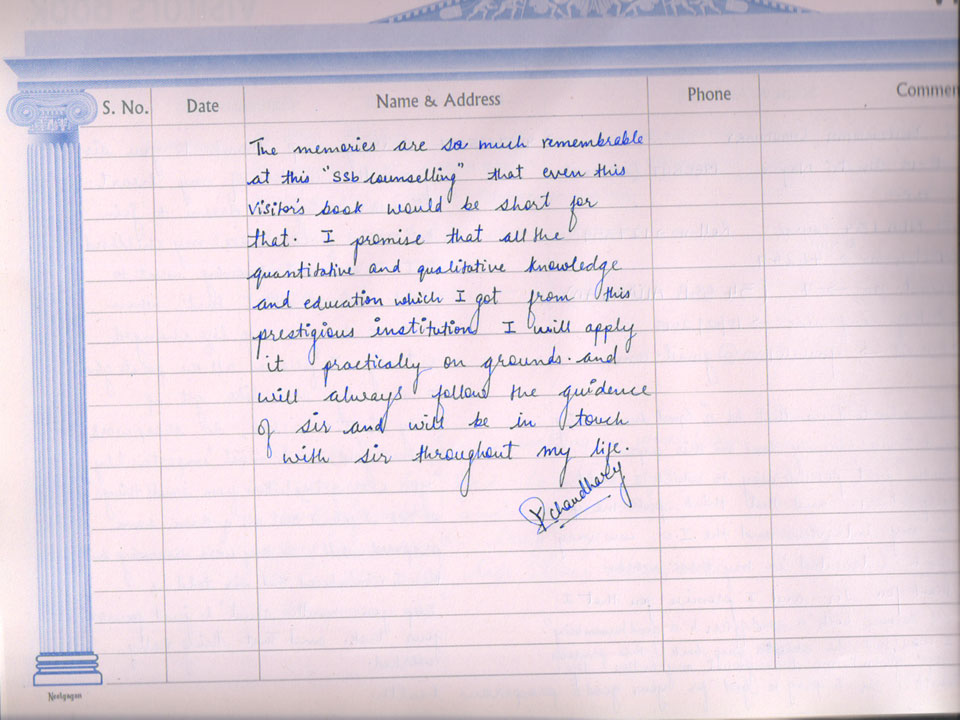 S. No.
Date
Name & Address
Phone
The memories are so much remembrable
at this "SSb counselling" that even this
visitor's book would be short for
that. I promise that all the
quantitative and qualitative knowledge
and education which I got from this
prestigious institution I will apply
it practically on grounds. and
will always follow the guidence
of sir and will be in touch
with sir throughout my life.
chaudhary
Neelgagan